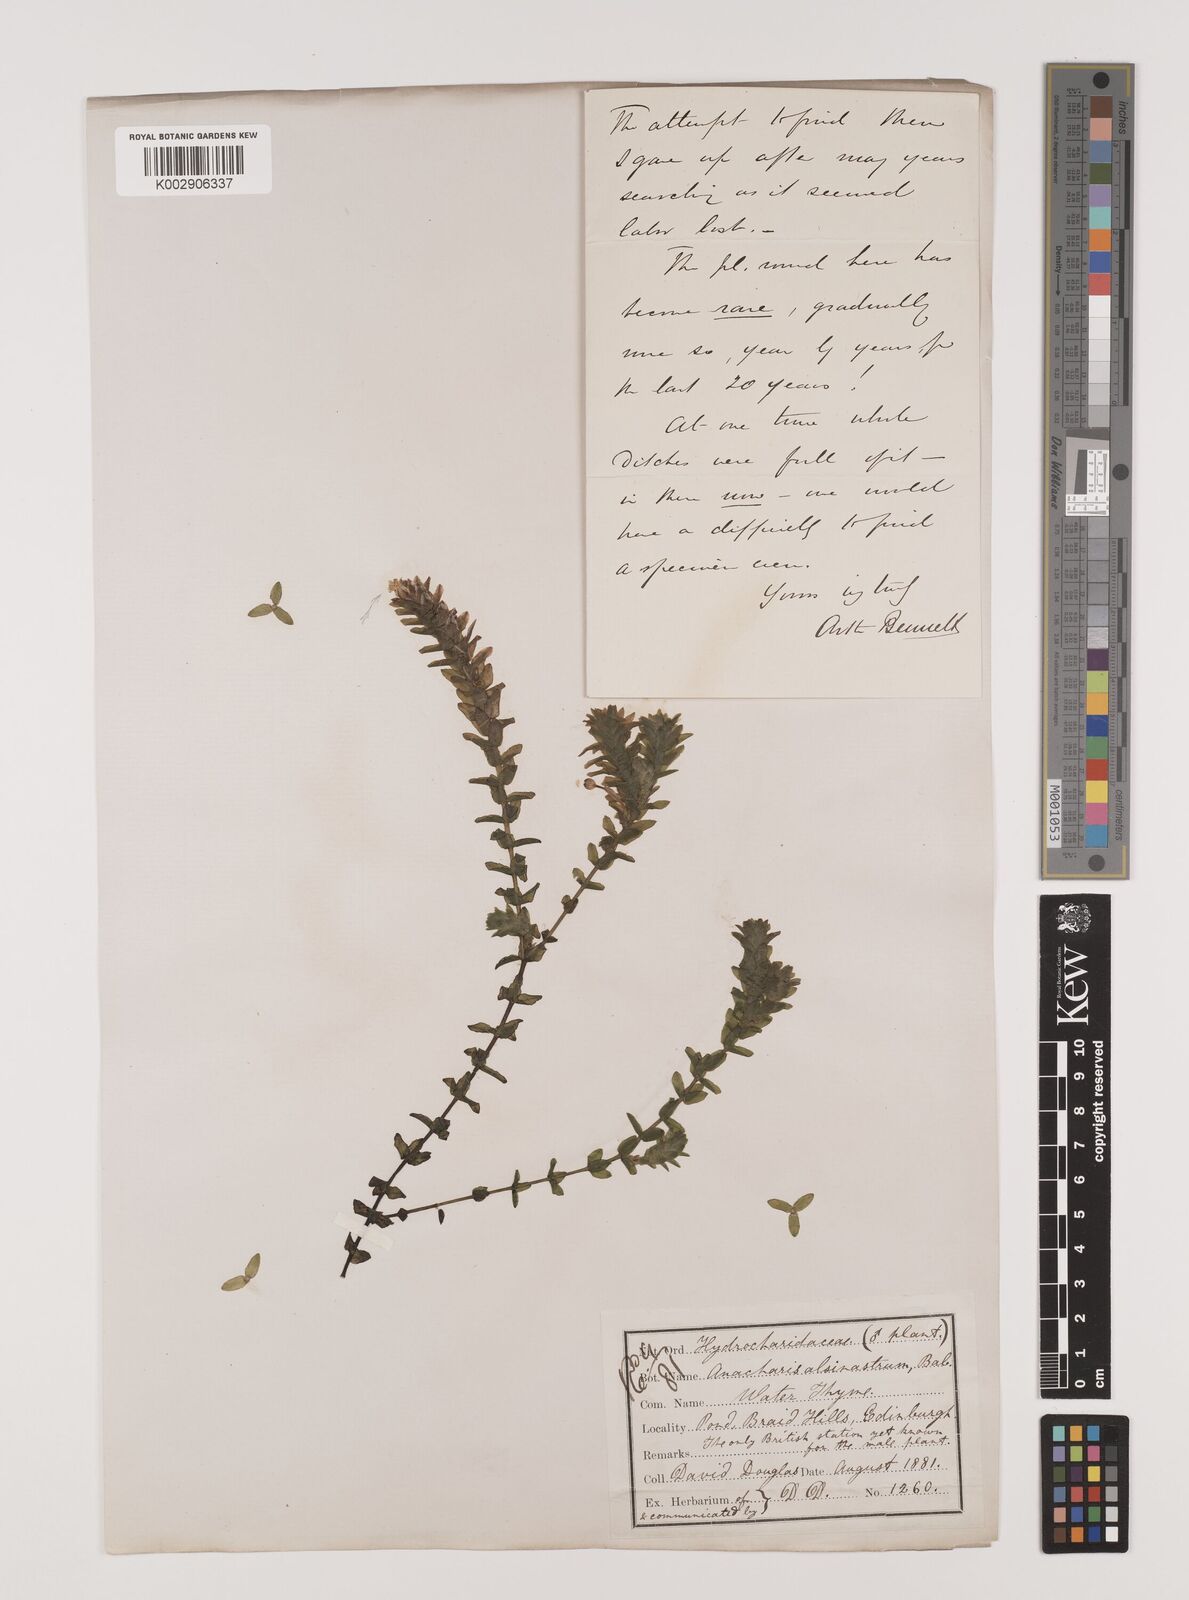 ROYAL BOTANIC GARDENS KEW
K002906337
The attempt to find them
I gave up after many years
searching as it seemed
labor lost. -
The pl. round here has
become rare, gradually
more so, year by years, for
the last 20 years!
At one time whole
Ditches were full of it -
in them now - one would
have a difficulty to find
a specimen even.
Yours very truly
Arth Bennett
Nat. Ord. Hydrocharidaceae. (♂ plant.)
Bot. Name. Anacharis alsinastrum, Bab.
Com. Name Water Thyme.
Locality Pond, Braid Hills, Edinburgh.
Remarks The only British station yet known
for the male plant.
Coll. David Douglas Date August 1881.
Ex. Herbarium of } D D. No. 1260.
& communicated by
inches
Density
Don Williams
M001053
centimeters
Royal Botanic Gardens
Kew
0 1 2 3 4 5 6 7 8 9 10
copyright reserved